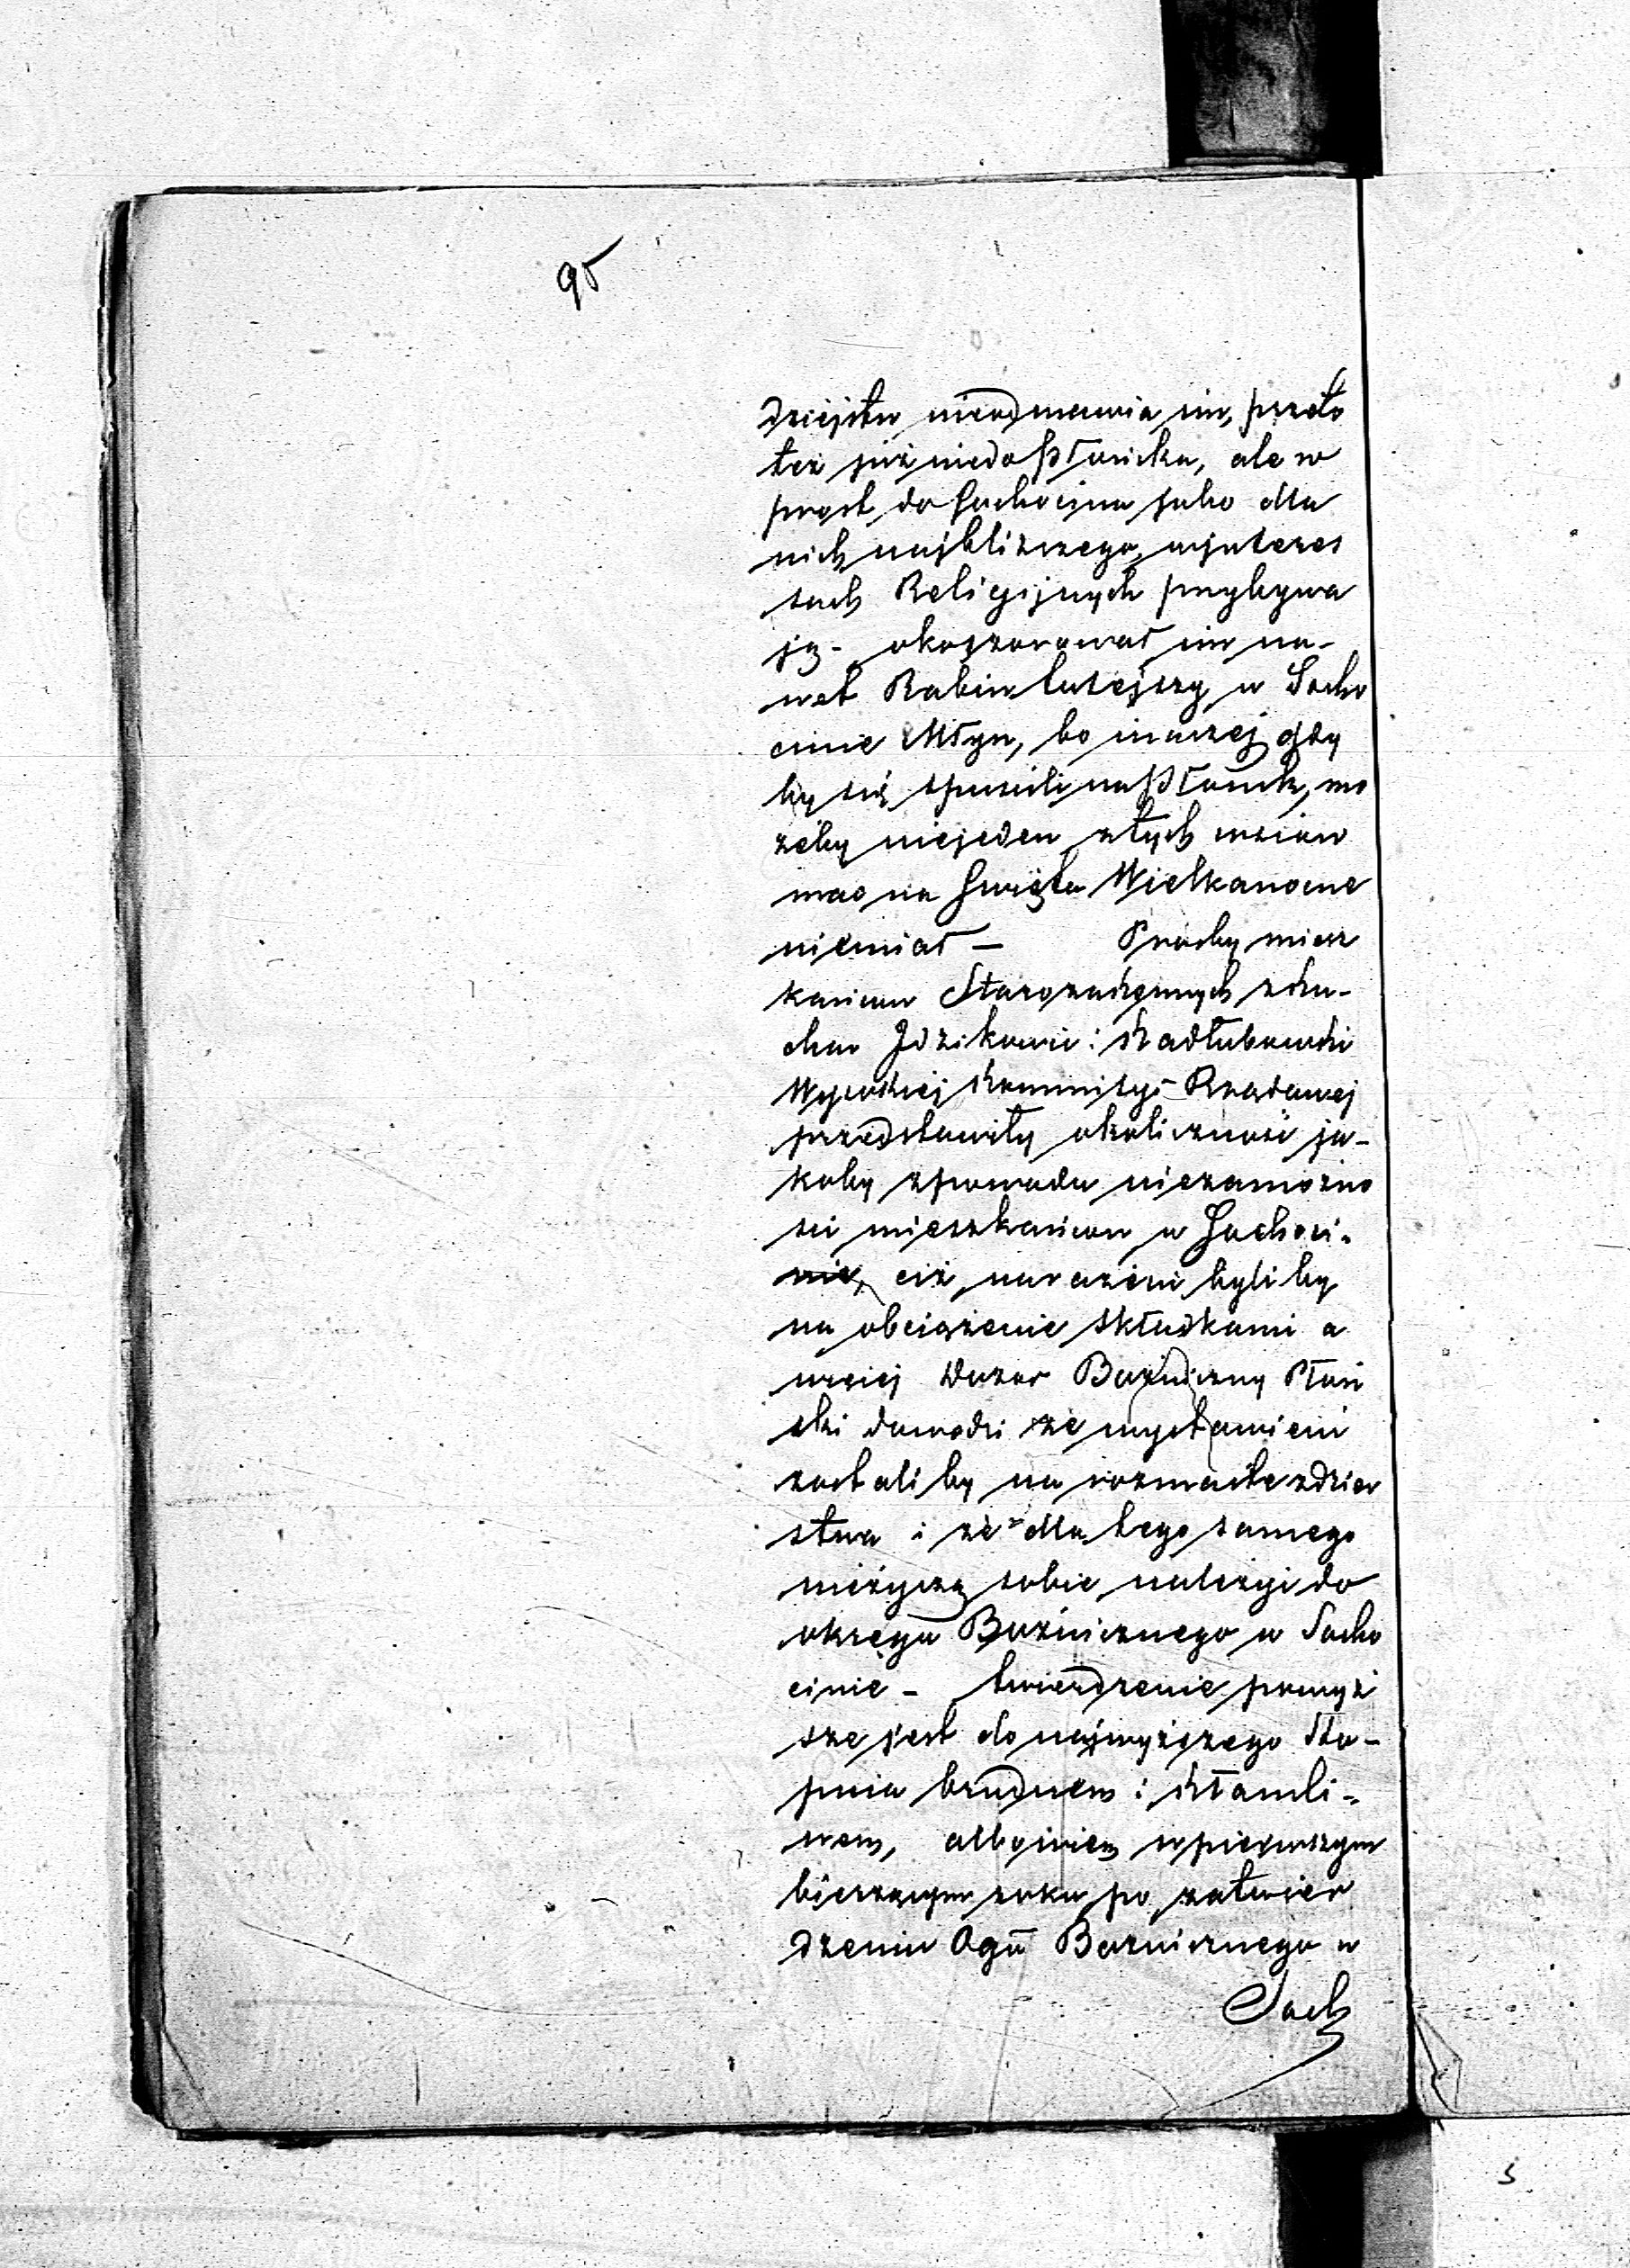 95
dziejstw nieodmawia im, przeto
też już niedo Płońska, ale w
prost do Sochocina jako dla
nich najbliższego, w jnteres
sach Religijnych przybywa
ją - okoszerował im na-
wet Rabin tutejszy w Socho
cinie Młyn, bo inaczej gdy
by się spuścili na Płońsk, mo
żeby niejeden z tych wsiów
mac na Swięta Wielkanocne
niemiał — Prośby miesz
kańców Starozakonnych z
Jdzikowic i Kadłubowski
Wysokiej Kommisyi Rządowej
przedstawiły okoliczność ja-
koby z powodu niezamożno
sci mieszkańców w Sochoci-
nie, ciż narażeni byli by
na obciążenie składkami a
wreiej Dozor Bożniczny Płoń
ski dowodzi że wystawieni
zostali by na rozmaite zdzier
stwa i że dla tego samego
nieżyczą sobie należyć do
okręgu Bożnicznego w Socho
cinie - twierdzenie powyż
sze jest do najwyższego Sto-
pnia brudnem i kłamli-
wem, albowiem w pierwszym
bierzącym roku po zatwier
dzeniu Ogu Bożnicznego w
Soch